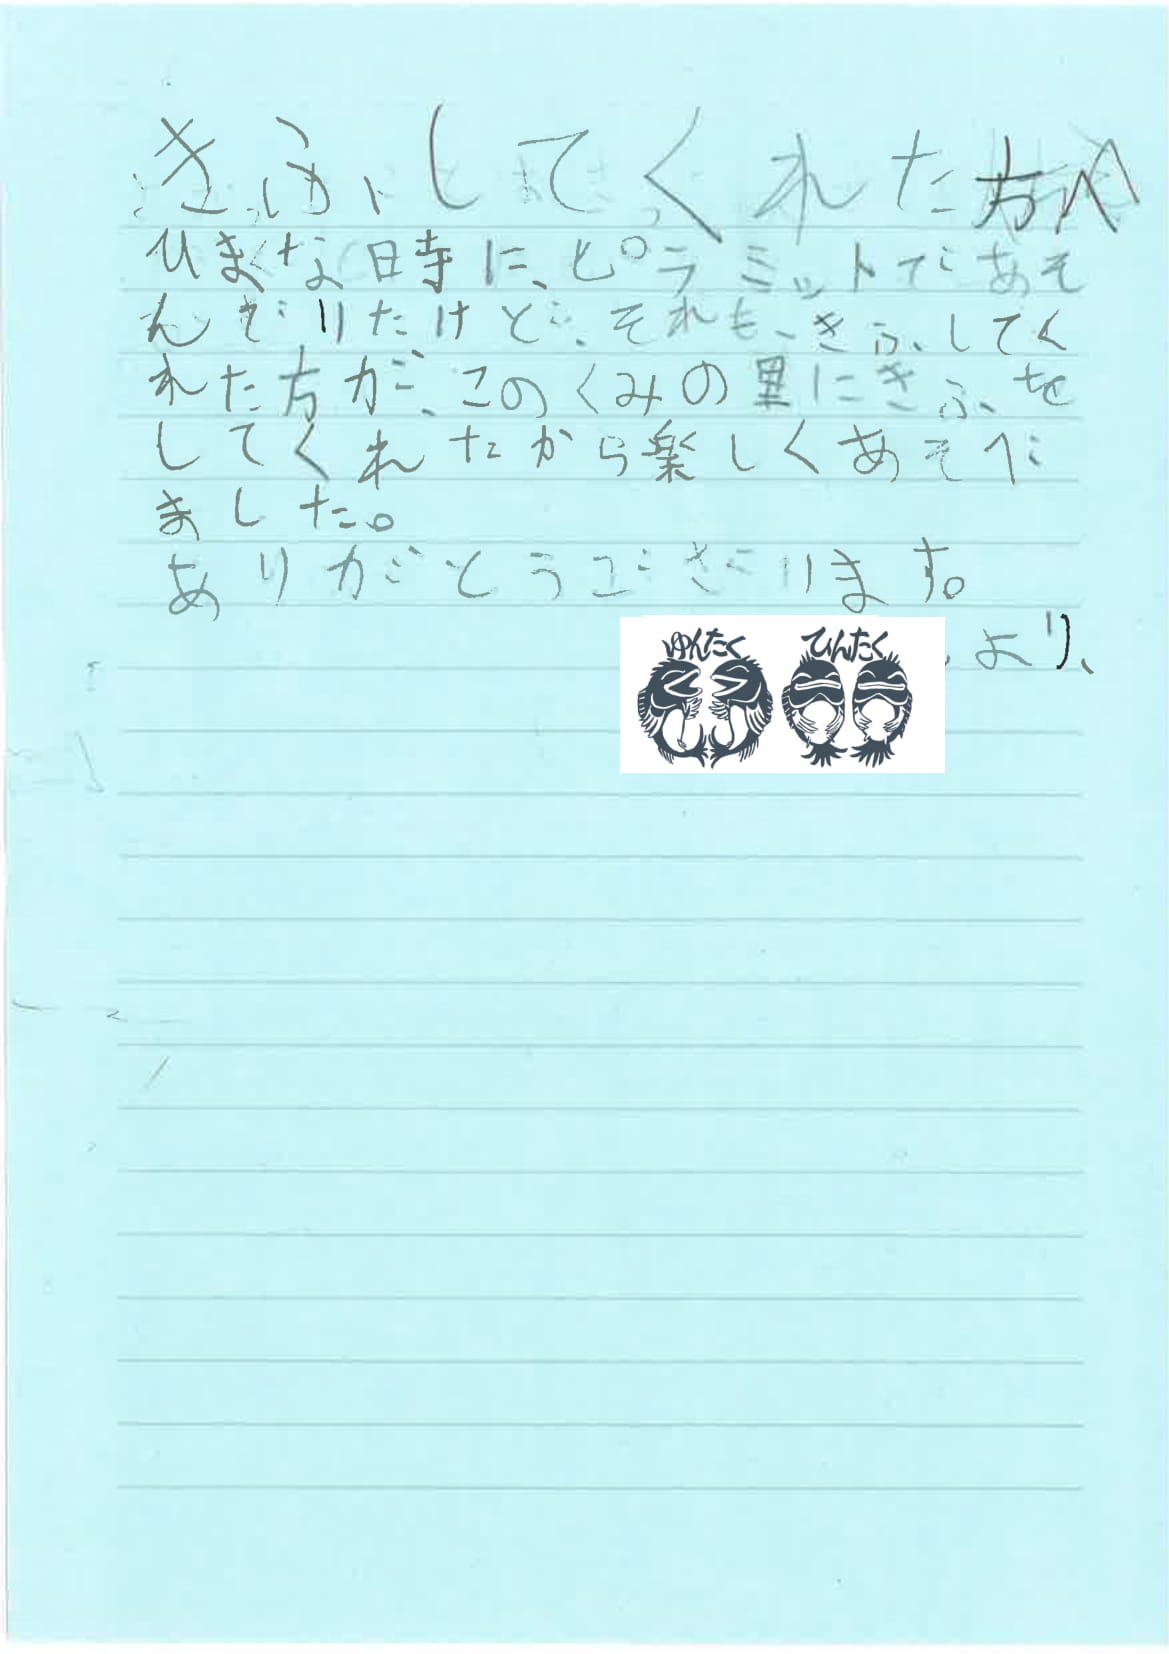 きふしてくれた方へ
ひまな時に、ピラミットであそ
んだりたけど、それも、きふしてく
れた方が、このくみの里にきふを
してくれたから楽しくあそべ
ました。
ありがとうございます。
より、
ゆんたく ひんたく